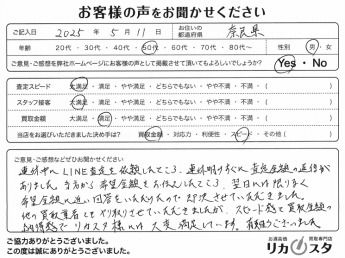 お客様の声をお聞かせください
ご記入日 2025年 5月 11日 お住いの都道府県 奈良県
年齢 20代・30代・40代・50代・60代・70代・80代~ 性別 男・女
ご意見・ご感想を弊社ホームページにお客様の声として掲載させて頂いてもよろしいでしょうか? Yes・No
査定スピード 大満足・満足・やや満足・どちらでもない・やや不満・不満・( )
スタッフ接客 大満足・満足・やや満足・どちらでもない・やや不満・不満・( )
買取金額 大満足・満足・やや満足・どちらでもない・やや不満・不満・( )
当店をお選びいただきました決め手は? 買取金額・対応力・利便性・スピード・その他( )
ご意見・ご感想などぜひお聞かせください
連休中にLINE査定を依頼したところ、連休明けすぐに査定金額の返信が
ありました。当方から希望金額をお伝えしたところ、翌日には限りなく
希望金額に近い回答をいただけたので対決させていただきました。
他の買取業者ともやり取りさせていただきましたが、スピード感と買取金額の
納得感でリカスタ様には大変満足しています。有難うございました
ご協力ありがとうございました。
この度は誠にありがとうございました。
お酒高価 買取専門店
リカスタ